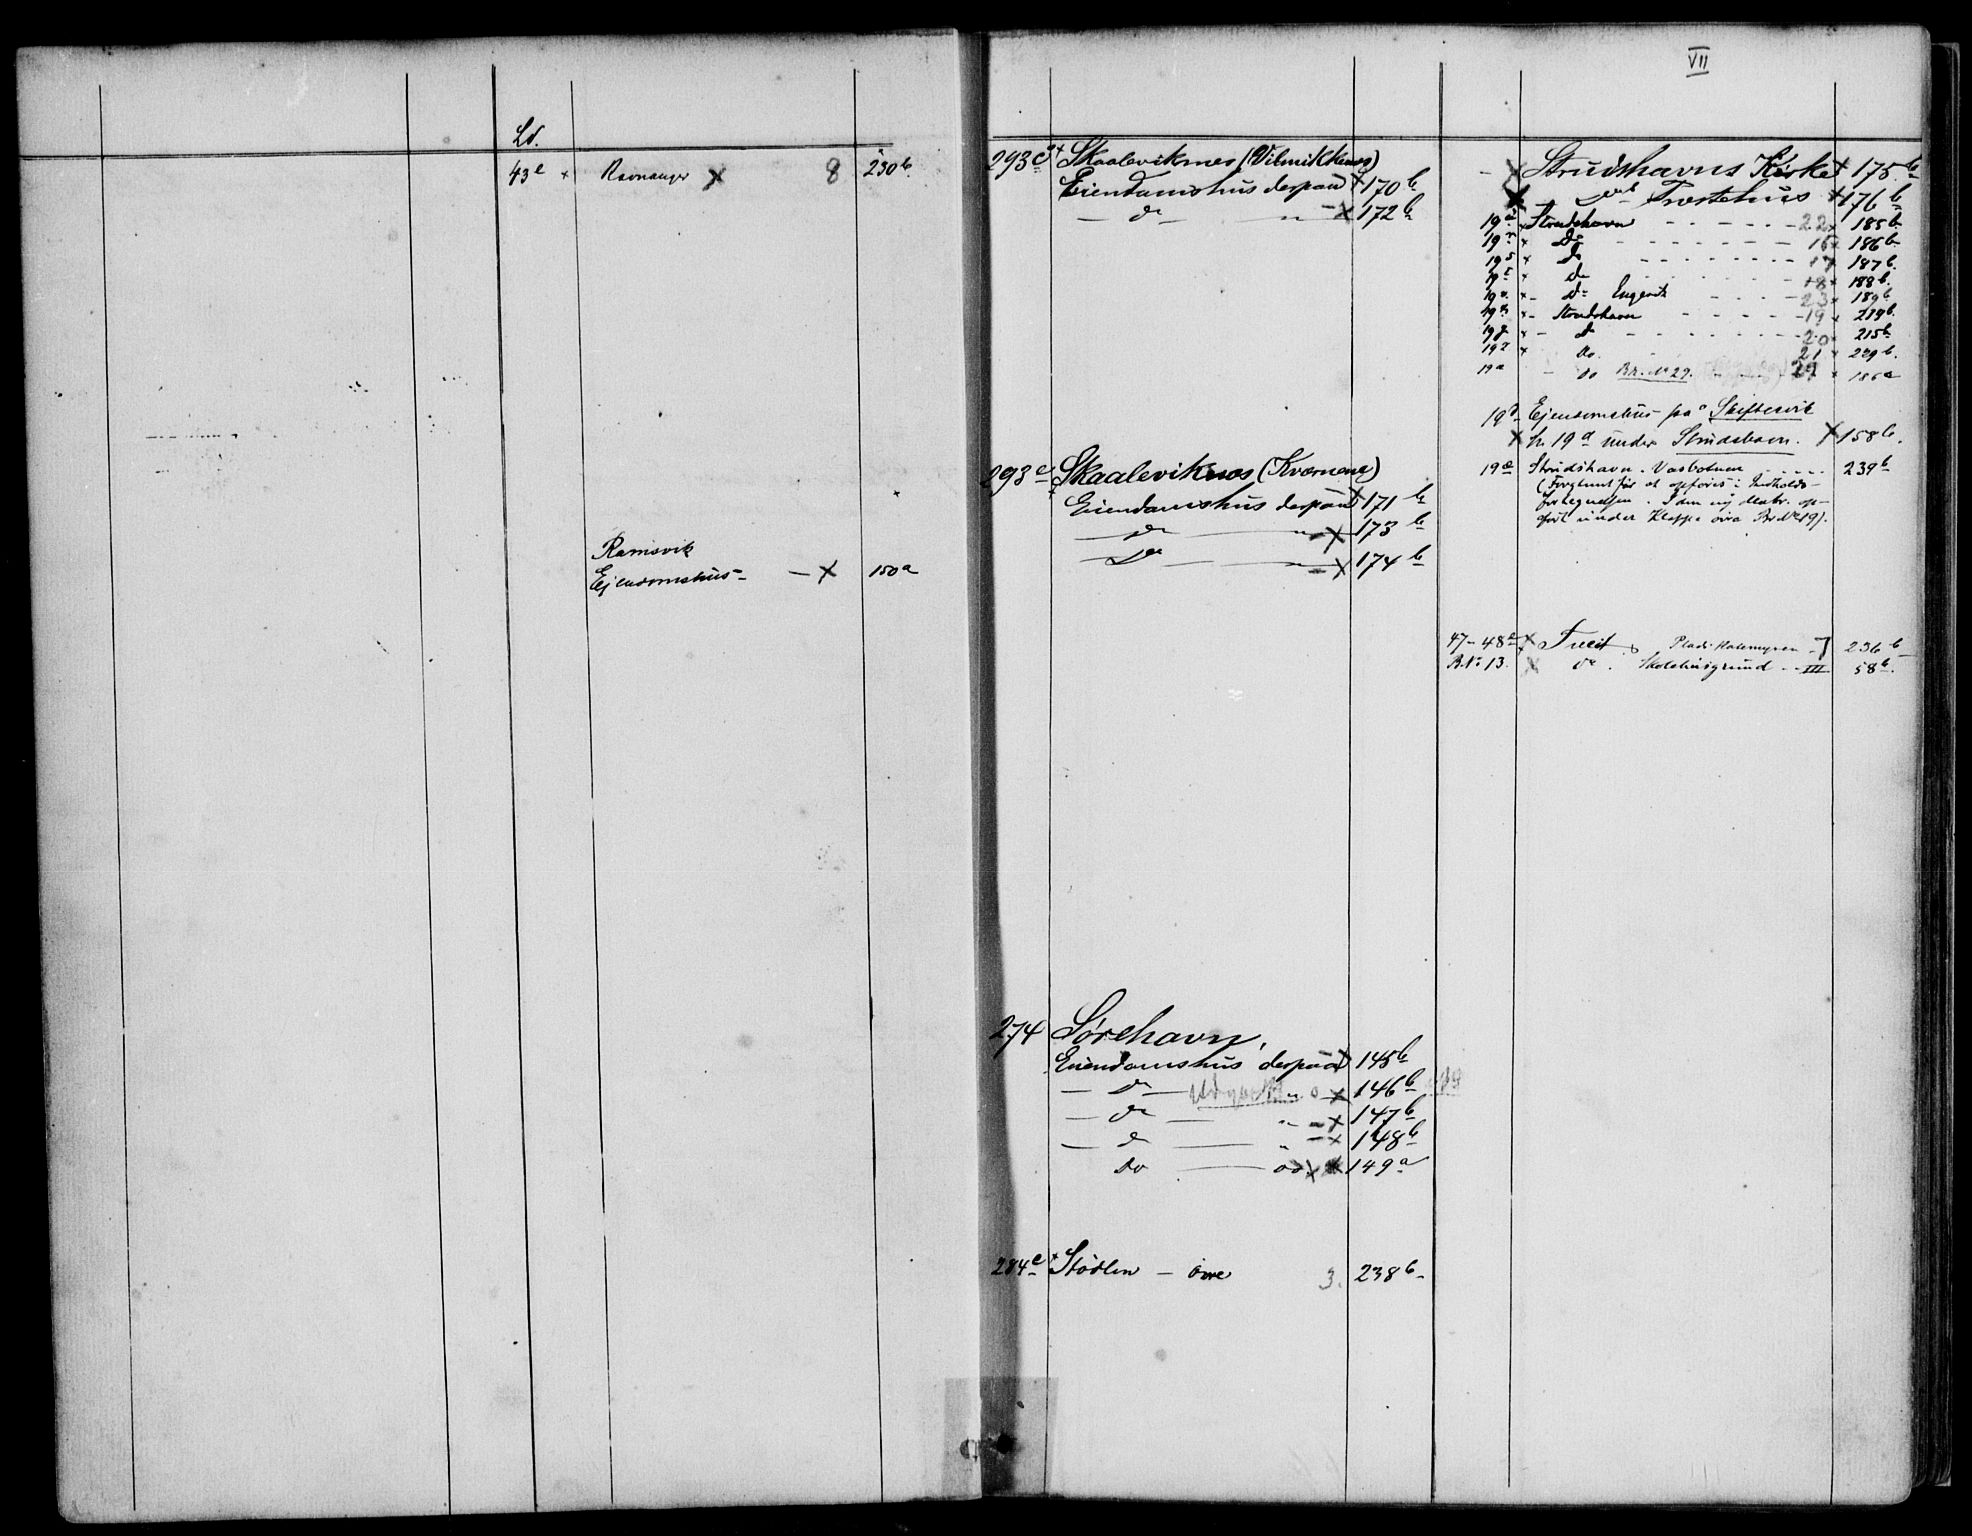 Ld.
43 e × Ravnanger × 8 230 b.
Ramsvik
Ejendomshus - — × 150 a
VII
293 c × Skaaleviksnes (Vilmikkenes)
Eiendomshus derpaa × 170 b
— do — " — × 172 b
293 e Skaaleviknes (Kværnene)
× Eiendomshus derpaa × 171 b
— do — " — × 173 b
— Do — " — × 174 b
274 Sörehavn,
Eiendomshus derpaa × 145 b
— do — " o × 146 b
— do — " — × 147 b
— do — " — × 148 b
Do — " × 149 a
284 c × Städlen — övre 3. 238 b
- × Strudshavns Kirke × 175 b
× do Præstehus × 176 b
19 × Strudshavn - - - - - 22 × 185 b
19 × Do - - - - - - 16 × 186 b
19 s × do - - - - - - 17 × 187 b.
19 × do - - - - - 18 × 188 b.
19 × - do - - - 23 × 189 b
19 × - Strudshavn - - - - - 19 × b.
19 × - do - - - - - - 20 × 215 b
19 × do. 21 × 229 b.
19 a - do Br. No 29. 29 × 186 a
19 d Ejendomshus på Skiftesvik
× br. 19 d under Strudshavn. × 158 b.
19 æ Strudshavn. Vasbotnen - - - - - 239 b
(Forglemt før at opføres i Indholds-
fortegnelsen. I den ny Matr. op-
ført under Kleppe øvre Br No 19).
47-48 a × Treit, Plads Holemyren - 236 b
B.No 13. × do. Skolehusgrund - - III 58 b.